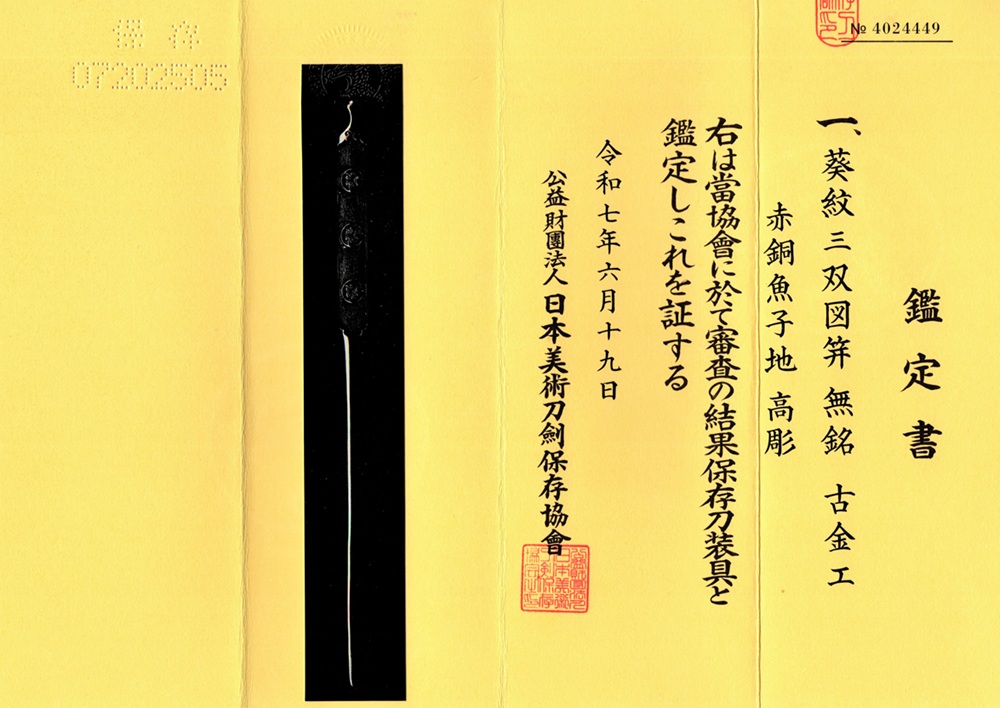 № 4024449
鑑定書
一、葵紋三双図笄 無銘 古金工
赤銅魚子地 高彫
右は當協會に於て審査の結果保存刀装具と
鑑定しこれを証する
令和七年六月十九日
公益財團法人 日本美術刀劍保存協會
保存
07202505